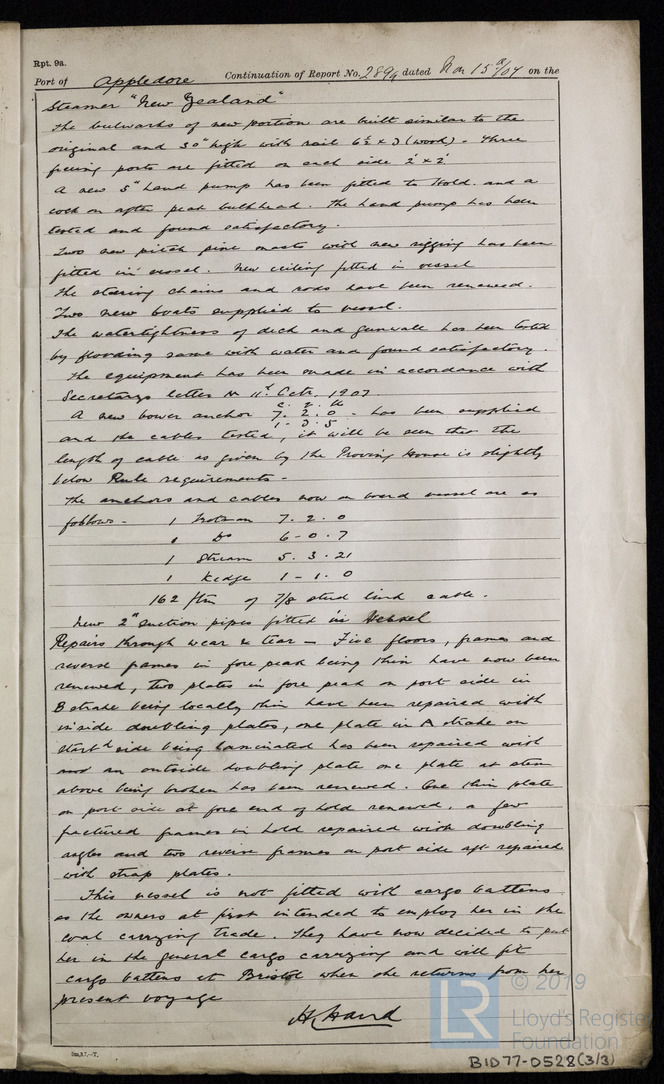 Rpt. 9a.
Port of Appledore Continuation of Report No. 2894 dated Mar 15th/04 on the
Steamer "New Zealand"
The bulwarks of new portion are built similar to the
original and 30" high with rail 6½ x 3 (wood). Three
freeing ports are fitted on each side 2' x 2'
A new 5" hand pump has been fitted to Hold. and a
cock on after peak bulkhead. The hand pump has been
tested and found satisfactory.
Two new pitch pine masts with new rigging has been
fitted in vessel. New ceiling fitted in vessel
The steering chains and rods have been renewed.
Two new boats supplied to vessel.
The watertightness of deck and gunwale has been tested
by flooding same with water and found satisfactory.
The equipment has been made in accordance with
Secretarys letter M 11th Octr. 1903.
c. q. lb
A new bower anchor 7. 2. 0 - has been supplied
1 - 3. 5
and the cables tested, it will be seen that the
length of cable as given by the Proving House is slightly
below Rule requirements -
The anchors and cables now on board vessel are as
follows - 1 Trotman 7. 2. 0
1 Do 6 - 0. 7
1 Stream 5. 3. 21
1 Kedge 1 - 1. 0
162 ftm of 7/8 stud link cable.
New 2" suction pipes fitted in Vessel
Repairs through wear & tear - Five floors, frames and
reverse frames in fore peak being thin have now been
renewed, two plates in fore peak on port side in
B strake being locally thin have been repaired with
inside doubling plates, one plate in A strake on
starbd side being laminated has been repaired with
an outside doubling plate one plate at stem
above being broken has been renewed. One thin plate
on port side at fore end of hold renewed, a few
fractured frames in hold repaired with doubling
angles and two reverse frames on port side aft repaired
with strap plates.
This vessel is not fitted with cargo battens
as the owners at first intended to employ her in the
coal carrying trade. They have now decided to put
her in the general cargo carrying and will fit
cargo battens at Bristol when she returns from her
present voyage
H Hand
© 2019
LR
Lloyd's Register
Foundation
BID77-0528(3/3)